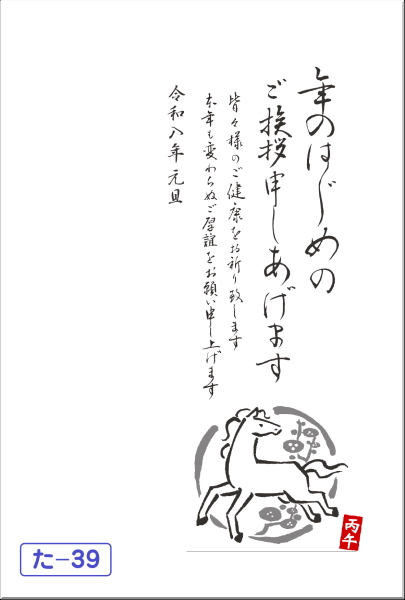 年のはじめの
ご挨拶申しあげます
皆々様のご健康をお祈り致します
本年も変わらぬご厚誼をお願い申し上げます
令和八年元旦
丙午
た-39